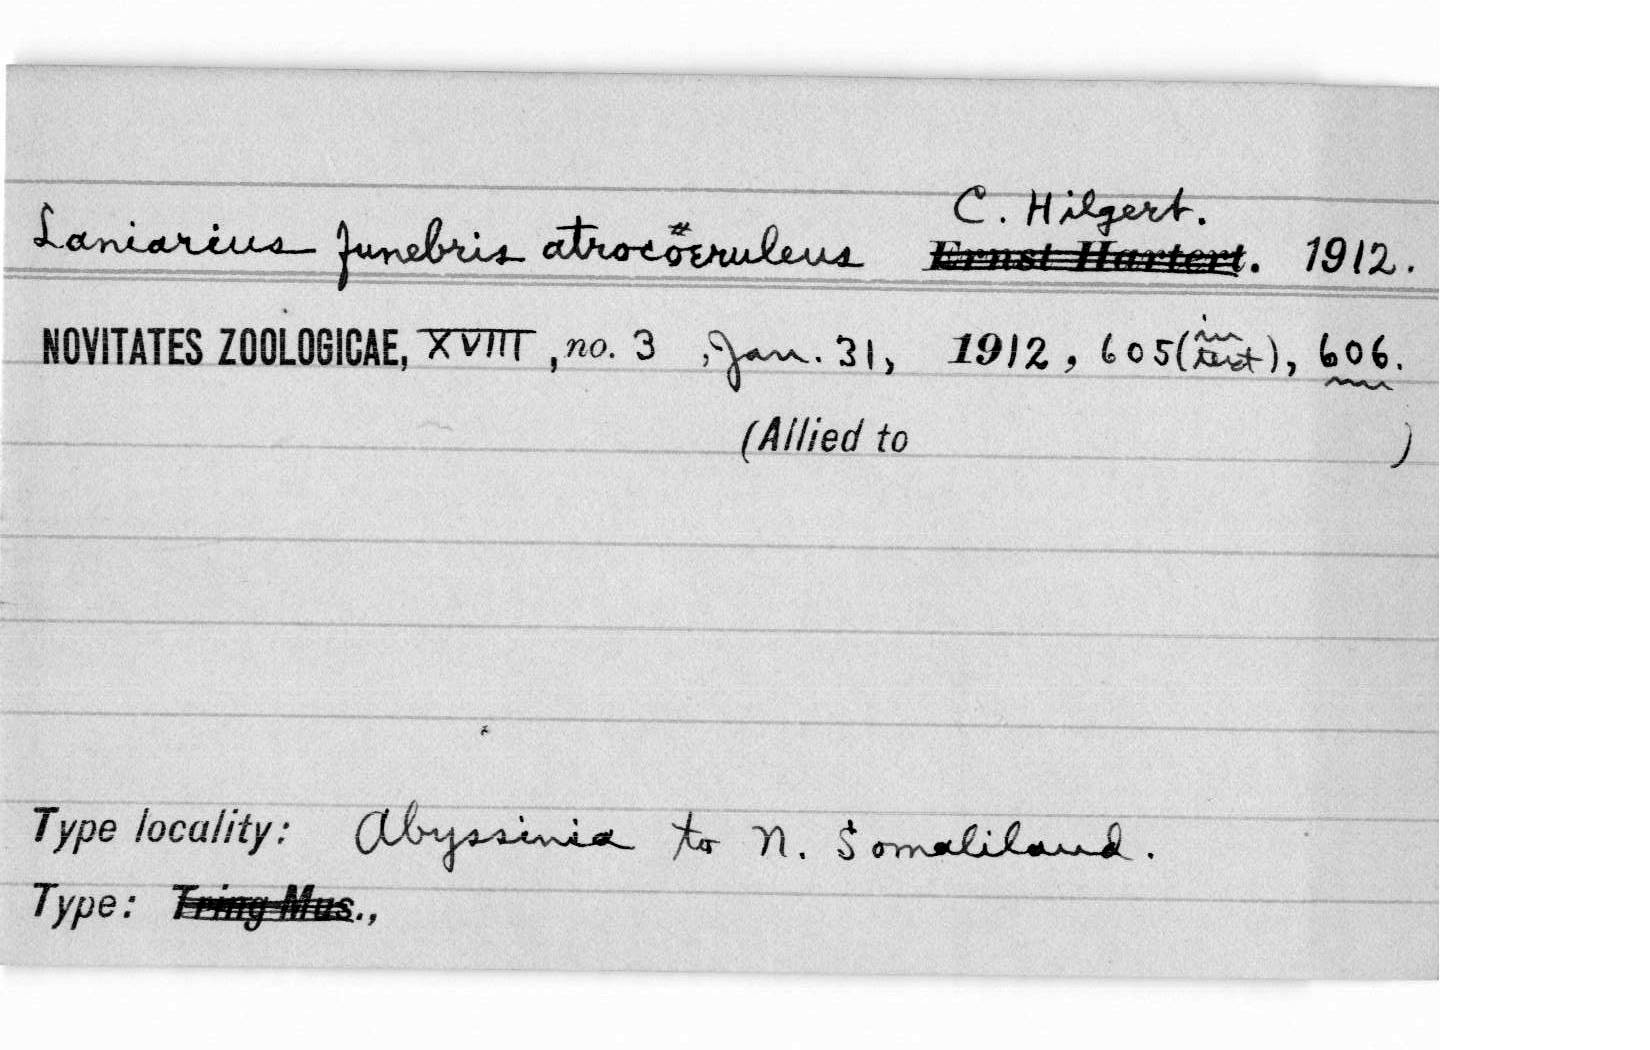 C. Hilgert.
Laniarius funebris atrocöeruleus Ernst Hartert. 1912.
NOVITATES ZOOLOGICAE, XVIII, no. 3, Jan. 31, 1912, 605(in text), 606.
(Allied to )
Type locality: Abyssinia to N. Somaliland.
Type: Tring Mus.,